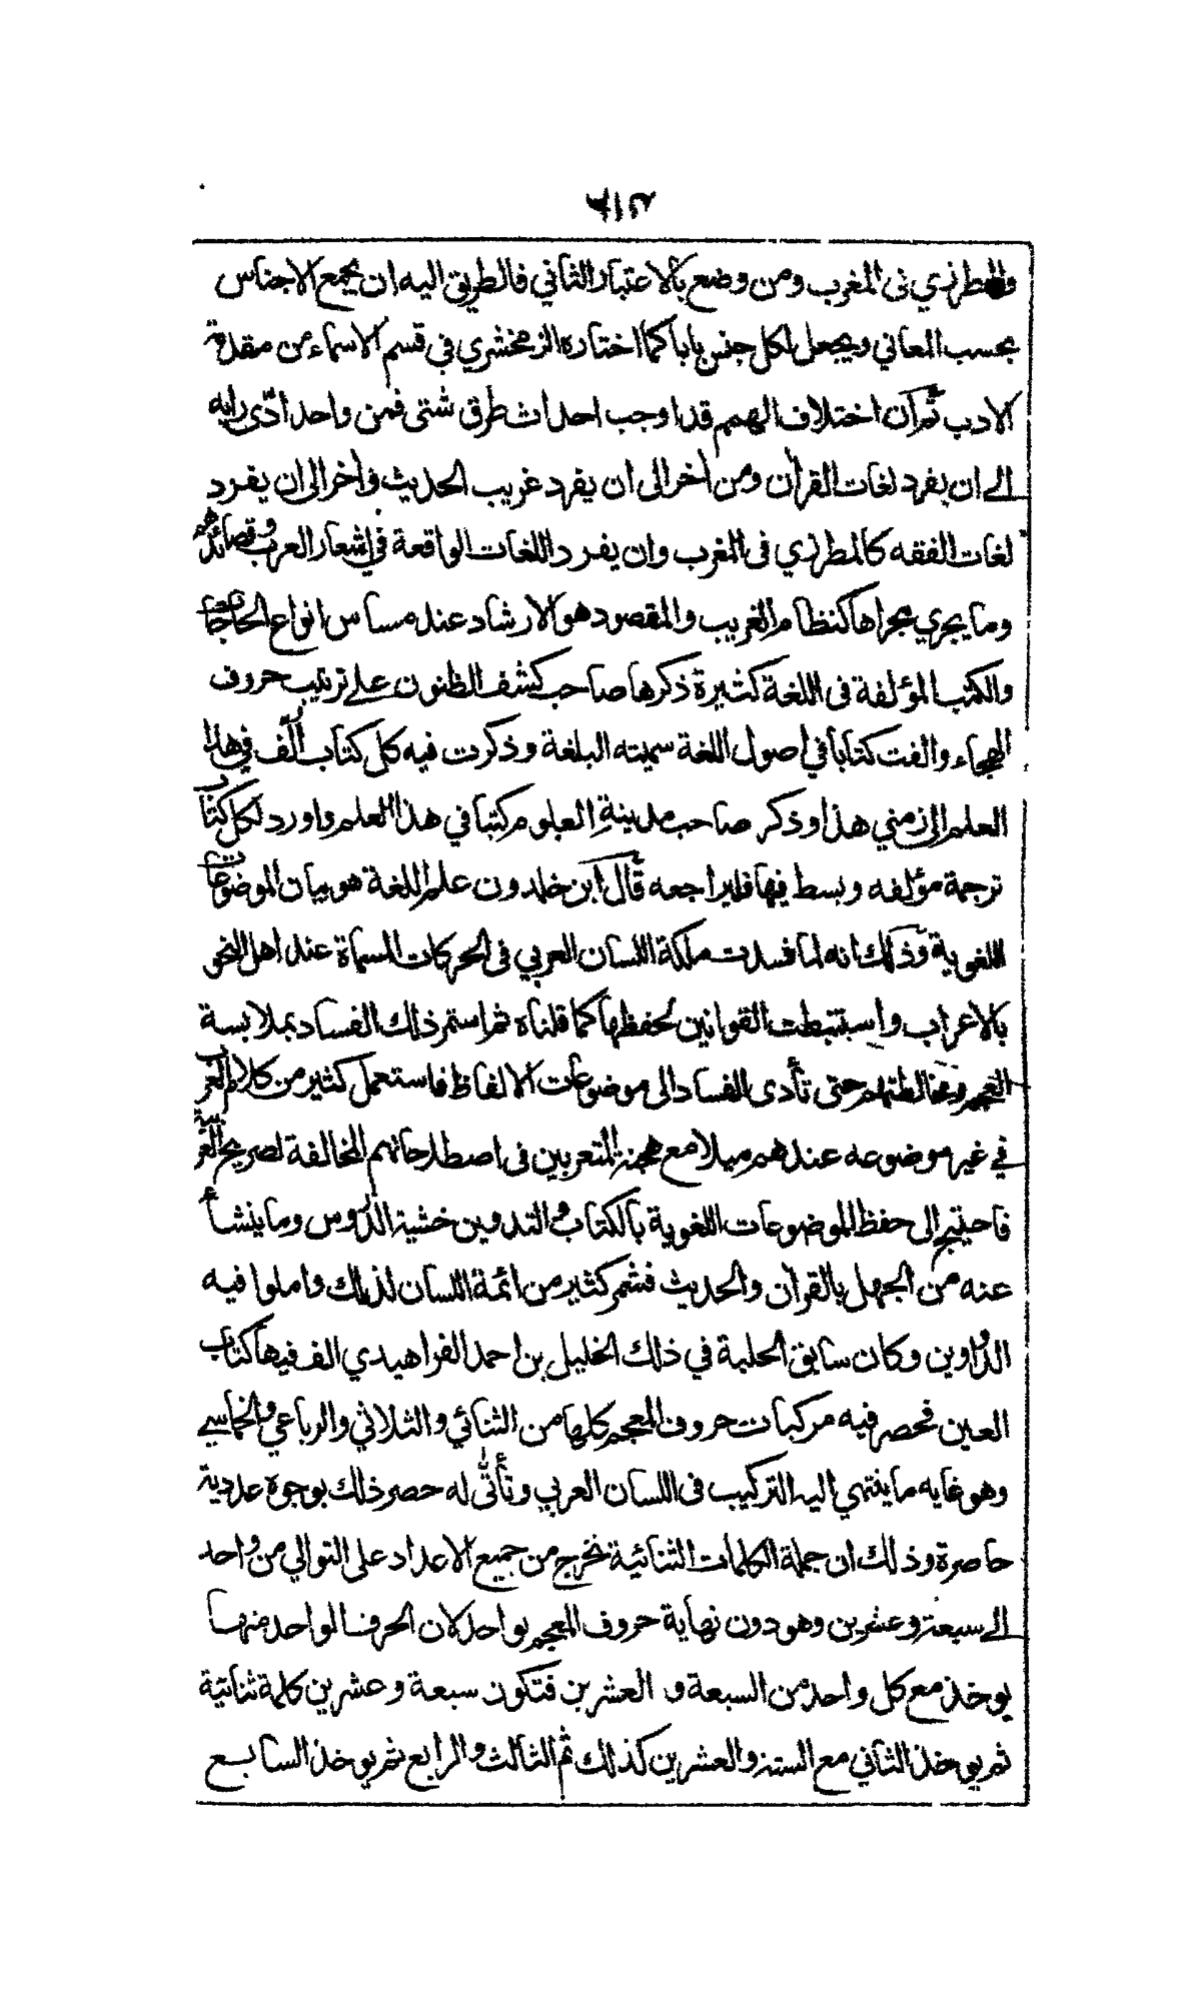 والمطرزي فى المغرب ومن وضع بالاعتبار الثاني فالطريق اليه ان يجمع الاجناس
بحسب المعاني ويجعل لكل جنس بابا كما اختاره الزمخشري في قسم الاسماء من مقدمة
الادب ثم ان اختلاف الهمم قد اوجب احداث طرق شتى فمن واحد ادّى رايه
الى ان يفرد لغات القرآن ومن اخر الى ان يفرد غريب الحديث واخر الى ان يفرد
لغات الفقه كالمطرزي فى المغرب وان يفرد اللغات الواقعة في اشعار العرب وقصائدهم
وما يجري مجراها كنظام الغريب والمقصود هو الارشاد عند مساس انواع الحاجات
والكتب المؤلفة فى اللغة كثيرة ذكرها صاحب كشف الظنون على ترتيب حروف
الهجاء والفت كتابا في اصول اللغة سميته البلغة وذكرت فيه كل كتاب الّف في هذا
العلم الى زمني هذا وذكر صاحب مدينة العلوم كتبا في هذا العلم واورد لكل كتاب
ترجمة مؤلفه وبسط فيها فليراجعه قال ابن خلدون علم اللغة هو بيان الموضوعات
اللغوية وذلك انه لما فسدت ملكة اللسان العربي فى الحركات المسماة عند اهل النحو
بالاعراب واستنبطت القوانين لحفظها كما قلناه ثم استمر ذلك الفساد بملابسة
العجم ومخالطتهم حتى تأدى الفساد الى موضوعات الالفاظ فاستعمل كثير من كلام العرب
في غير موضوعه عندهم ميلا مع هجنة المتعربين فى اصطلاحاتهم المخالفة لصريح العربية
فاحتيج الى حفظ الموضوعات اللغوية بالكتاب والتدوين خشية الدروس وما ينشأ
عنه من الجهل بالقرآن والحديث فشمر كثير من ائمة اللسان لذلك واملوا فيه
الدواوين وكان سابق الحلبة في ذلك الخليل بن احمد الفراهيدي الف فيها كتاب
العين فحصر فيه مركبات حروف المعجم كلها من الثنائي والثلاثي والرباعي والخماسي
وهو غايه ما ينتهي اليه التركيب فى اللسان العربي وتأتّى له حصر ذلك بوجوه عددية
حاصرة وذلك ان جملة الكلمات الثنائية تخرج من جميع الاعداد على التوالي من واحد
الى سبعة وعشرين وهو دون نهاية حروف المعجم بواحد لان الحرف الواحد منها
يوخذ مع كل واحد من السبعة و العشرين فتكون سبعة وعشرين كلمة ثنائية
ثم يوخذ الثاني مع الستة والعشرين كذلك ثم الثالث والرابع ثم يوخذ السابع